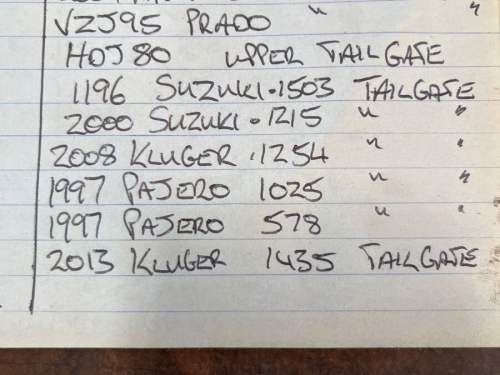 VZJ95 PRADO " "
HDJ80 UPPER TAILGATE
1196 SUZUKI.1503 TAILGATE
2000 SUZUKI.1215 " "
2008 KLUGER.1254 " "
1997 PAJERO 1025 " "
1997 PAJERO 578 " "
2013 KLUGER 1435 TAILGATE